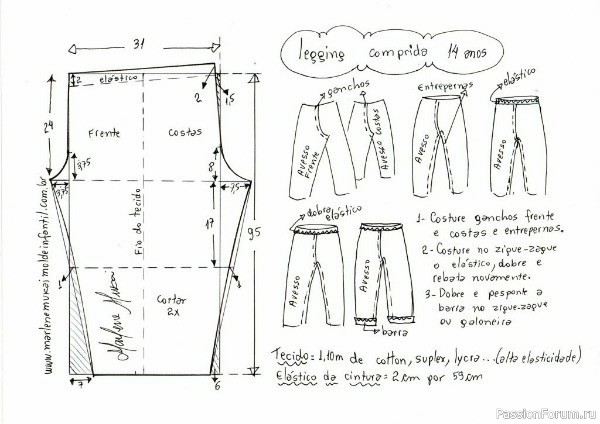 31
legging comprida 14 anos
2
elástico
2
1,5
24
Frente
Costas
3,75
8
3,75
7,5
Fio do tecido
17
95
1
1
Cortar
2x
Marlene Mukai
7
6
www.marlenemukaimoldeinfantil.com.br
ganchos
Entrepernas
elástico
Avesso
Frente
Avesso Costas
Avesso
Avesso
dobra
elástico
Avesso
Avesso
barra
1- Costure ganchos frente
e costas e entrepernas.
2- Costure no zigue-zague
o elástico, dobre e
rebata novamente.
3- Dobre e pesponte a
barra no zigue-zague
ou galoneira
Tecido = 1,10m de cotton, suplex, lycra... (alta elasticidade)
Elástico da cintura = 2 cm por 59 cm
PassionForum.ru